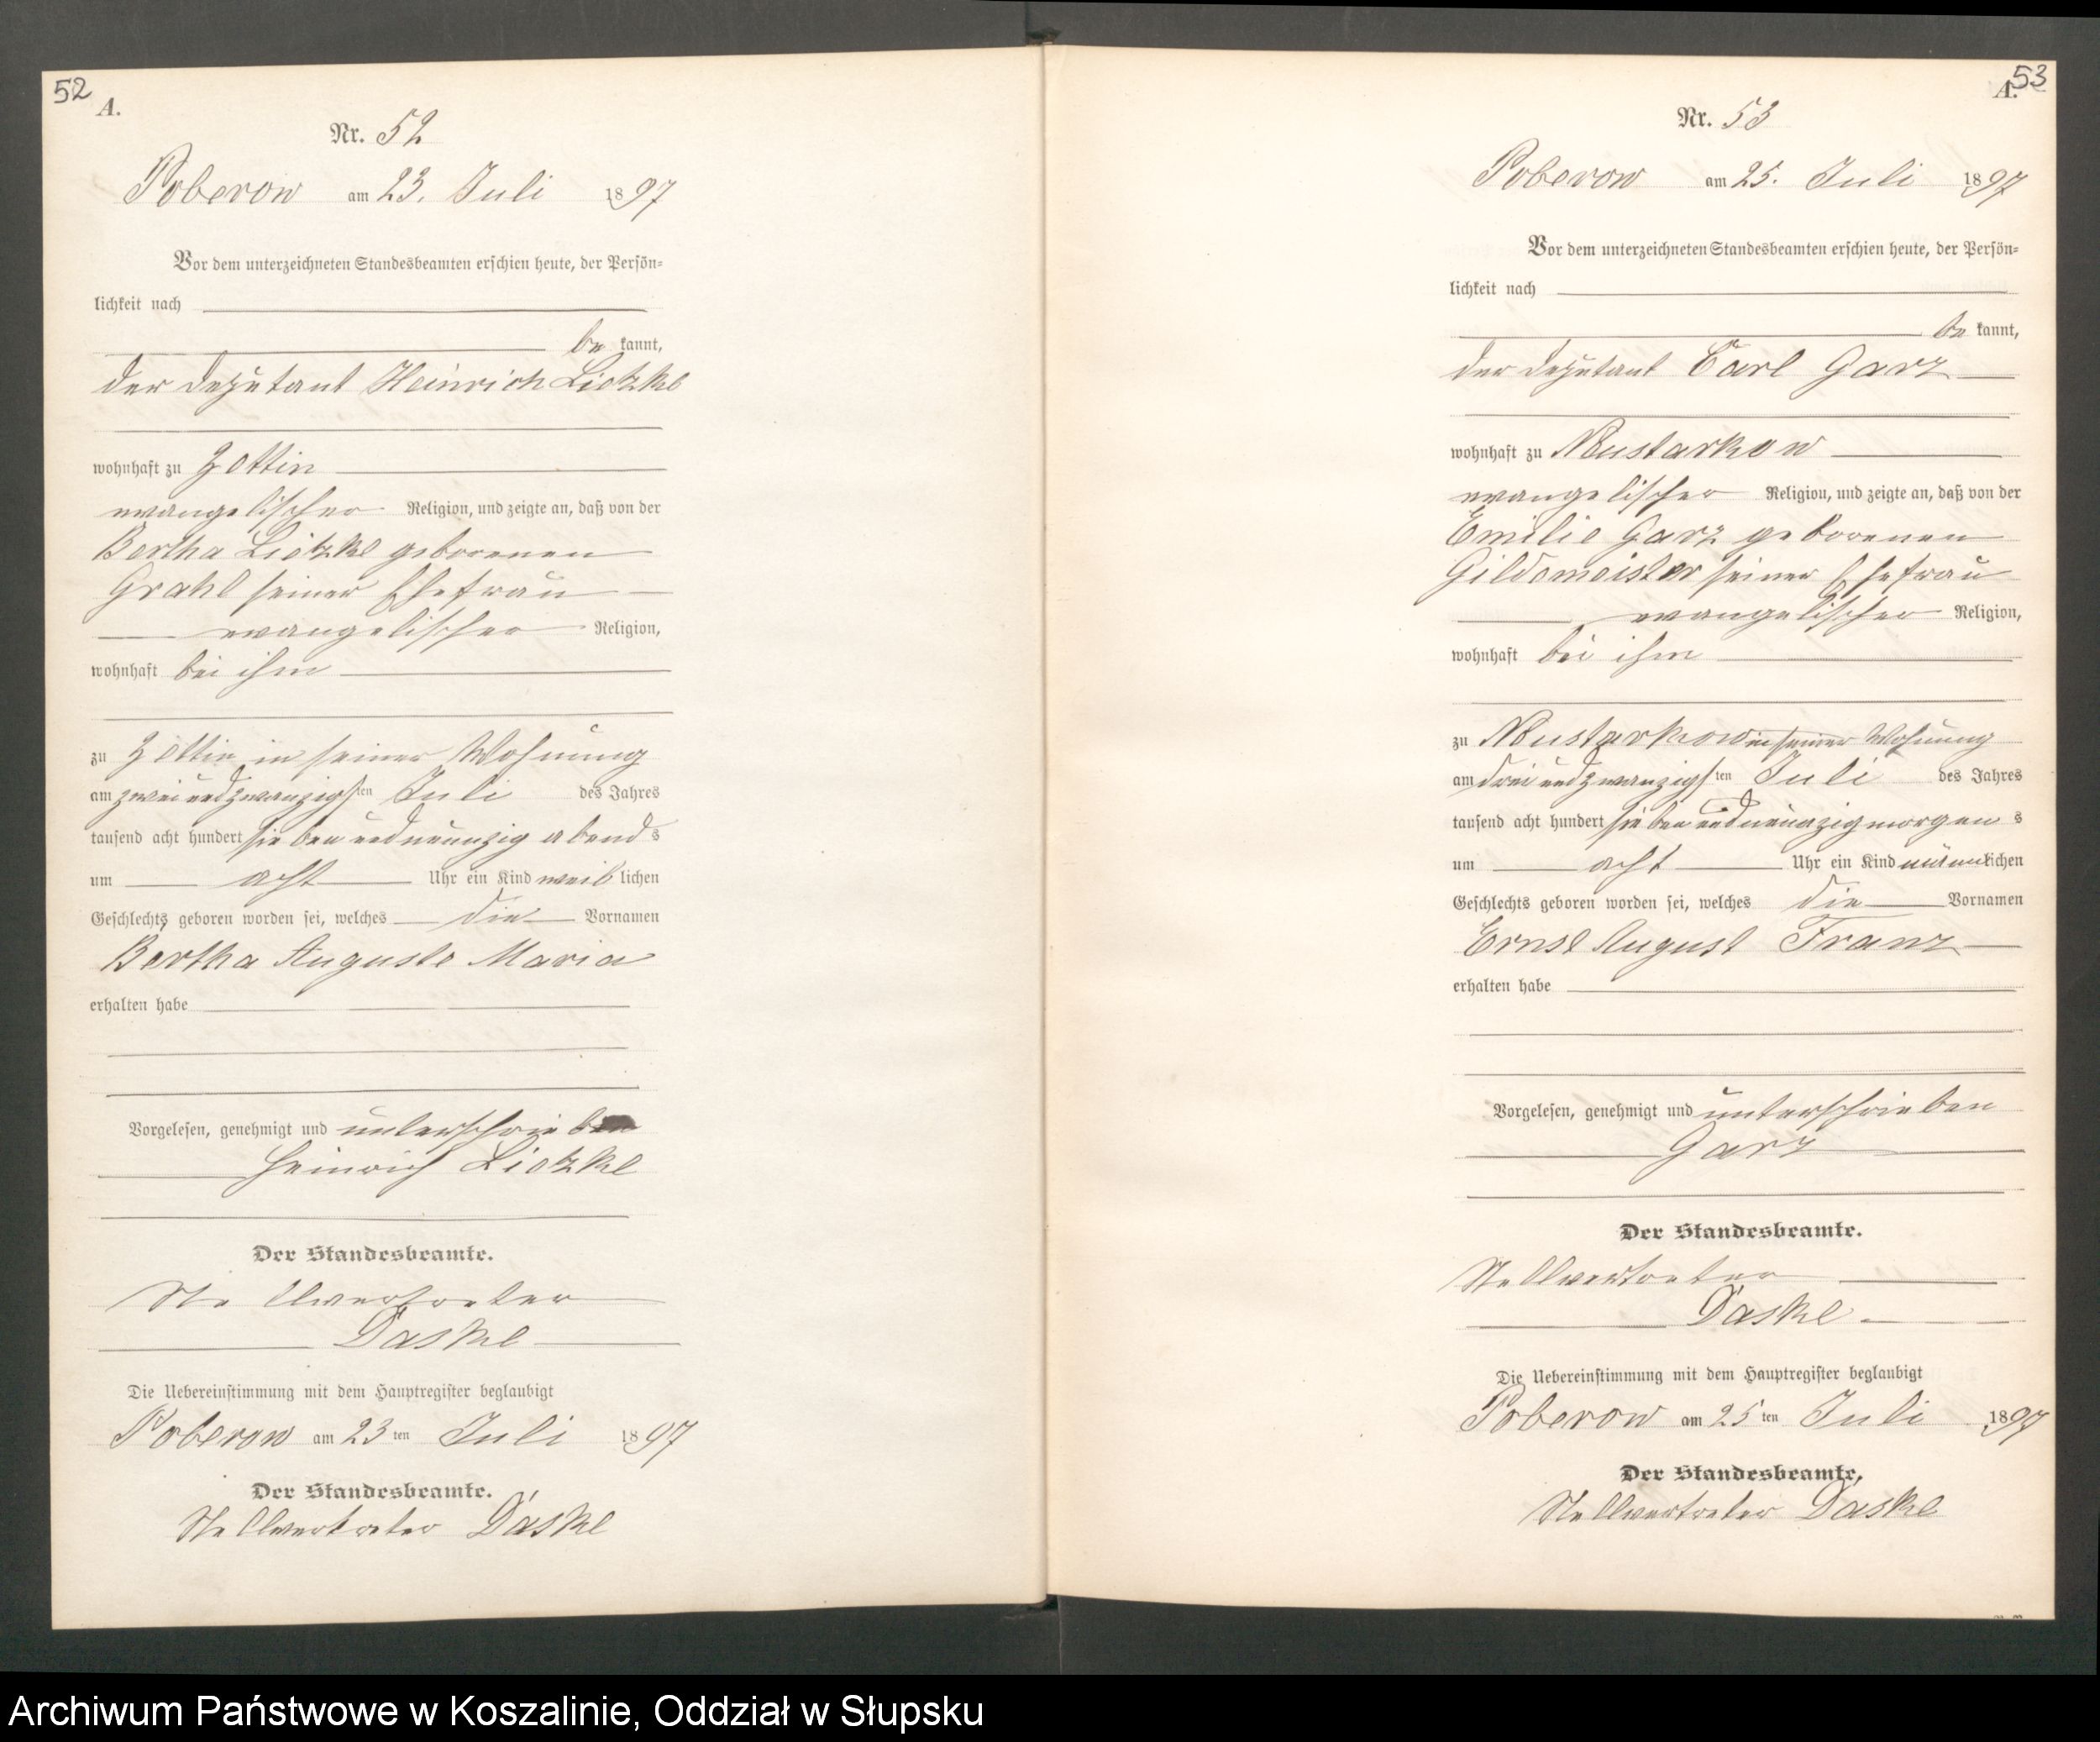 52
A.
Nr. 52
Poberow am 23. Juli 1897
Vor dem unterzeichneten Standesbeamten erschien heute, der Persön-
lichkeit nach
be kannt,
der Deputant Heinrich Lietzke
wohnhaft zu Zettin
evangelischer Religion, und zeigte an, daß von der
Bertha Lietzke geborenen
Grahl seiner Ehefrau
evangelischer Religion,
wohnhaft bei ihm
zu Zettin in seiner Wohnung
am zwei und zwanzigsten Juli des Jahres
tausend acht hundert sieben und neunzig abends
um acht Uhr ein Kind weiblichen
Geschlechts geboren worden sei, welches die Vornamen
Bertha Auguste Maria
erhalten habe
Vorgelesen, genehmigt und unterschrieben
Heinrich Lietzke
Der Standesbeamte.
Stellvertreter
Daske
Die Uebereinstimmung mit dem Hauptregister beglaubigt
Poberow am 23ten Juli 1897
Der Standesbeamte.
Stellvertreter Daske
53
A.
Nr. 53
Poberow am 25. Juli 1897
Vor dem unterzeichneten Standesbeamten erschien heute, der Persön-
lichkeit nach
be kannt,
der Deputant Carl Garz
wohnhaft zu Wustarkow
evangelischer Religion, und zeigte an, daß von der
Emilie Garz geborenen
Gildemeister seiner Ehefrau
evangelischer Religion,
wohnhaft bei ihm
zu Wustarkow in seiner Wohnung
am drei und zwanzigsten Juli des Jahres
tausend acht hundert sieben und neunzig morgens
um acht Uhr ein Kind männlichen
Geschlechts geboren worden sei, welches die Vornamen
Ernst August Franz
erhalten habe
Vorgelesen, genehmigt und unterschrieben
Garz
Der Standesbeamte.
Stellvertreter
Daske
Die Uebereinstimmung mit dem Hauptregister beglaubigt
Poberow am 25ten Juli 1897
Der Standesbeamte.
Stellvertreter Daske
Archiwum Państwowe w Koszalinie, Oddział w Słupsku